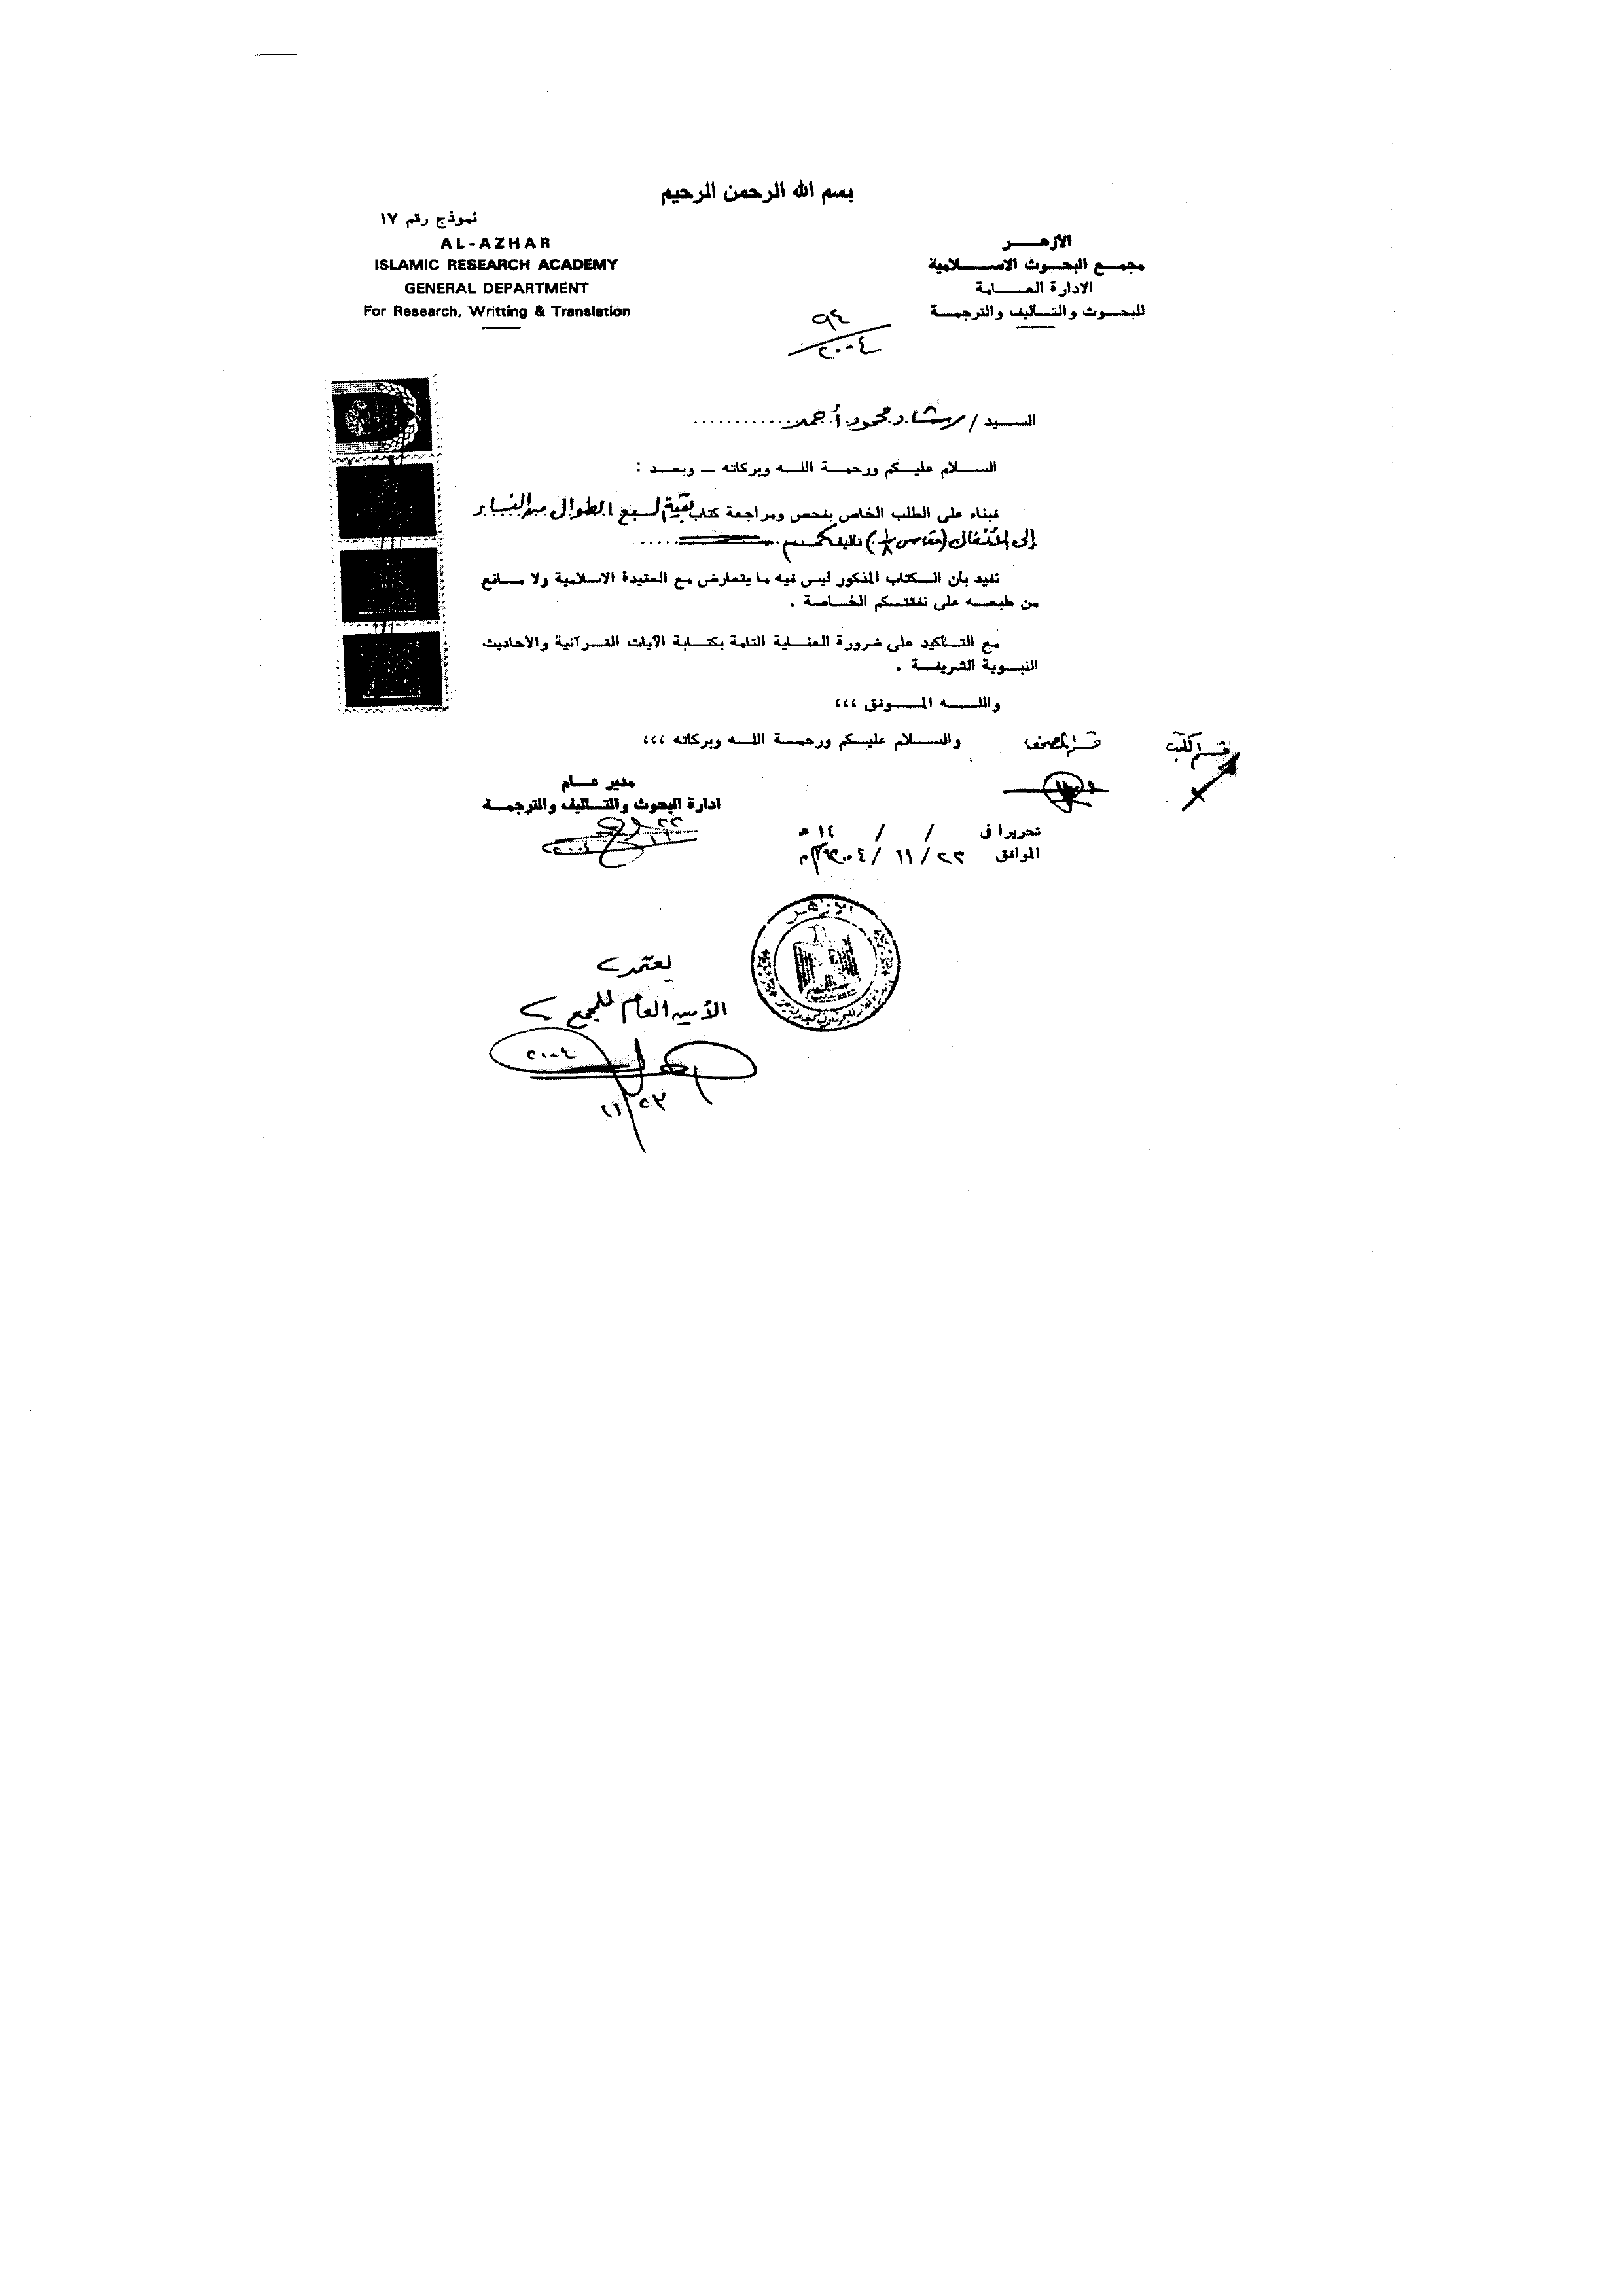 بسم الله الرحمن الرحيم
نموذج رقم ١٧
AL-AZHAR
ISLAMIC RESEARCH ACADEMY
GENERAL DEPARTMENT
For Research, Writting & Translation
الأزهـــر
مجمــع البحــوث الاســـلامية
الادارة العـــامة
للبحــوث والتــاليف والترجمــة
٩٤
٢٠٠٤
الســيد / رشاد محمود أحمد ...........
الســلام عليــكم ورحمــة اللــه وبركاته ــ وبعــد :
فبناء على الطلب الخاص بفحص ومراجعة كتاب بقية السبع الطوال من النساء
إلى الأنفال (مقاس ١/٨) تأليفكم .....
نفيد بأن الــكتاب المذكور ليس فيه ما يتعارض مع العقيدة الاسلامية ولا مــانع
من طبعــه على نفقتــكم الخــاصة .
مع التــأكيد على ضرورة العنــاية التامة بكتــابة الآيات القــرآنية والاحاديث
النبــوية الشريفــة .
واللـــه المـــوفق ،،،
والســـلام عليــكم ورحمــة اللــه وبركاته ،،،
قسم المصحف
قسم الكتب
مدير عــام
ادارة البحوث والتــاليف والترجمــة
٢٢
١١
٢٠٠٤
تحريرا فى / / ١٤ هـ
الموافق ٢٣ / ١١ / ٢٠٠٤م
الأزهر
يعتمد
الأمين العام للمجمع
٢٠٠٤
٢٣/١١